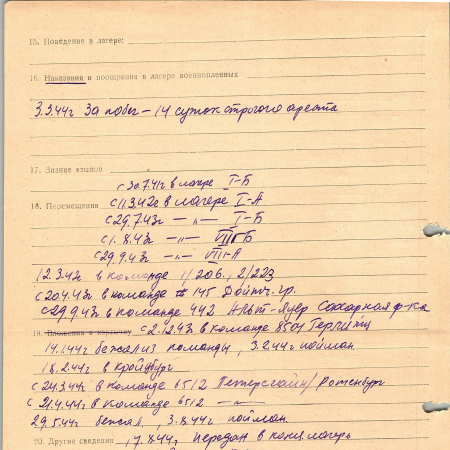 15. Поведение в лагере:
16. Наказания и поощрения в лагере военнопленных
3.3.44г За побег – 14 суток строгого ареста
17. Знание языков
с 30.7.41г в лагере I-Б
18. Перемещения с 11.3.42г в лагере I-А
с 29.7.43г –„– I-Б
с 1.8.43г –„– VIII-Б
с 29.9.43г –„– VIII-А
12.3.42 в команде 1/206, 2/223
с 20.4.43г в команде 145 Дойтч. гр.
с 29.9.43г в команде 442 Сахарная ф-ка
19. Вложения в карточку с 2.12.43г в команде 8501
14.1.44г бежал из команды, 3.2.44г пойман
18.2.44г в Кройцбург
с 24.3.44г в команде 6512 Петерсгайн/Ротенбург
с 21.4.44г в команде 6512 –„–
29.5.44г бежал, 3.8.44г пойман
20. Другие сведения 17.8.44г передан в конц. лагерь